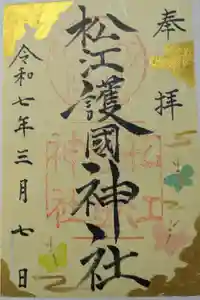 奉拝
松江護國神社
令和七年三月七日